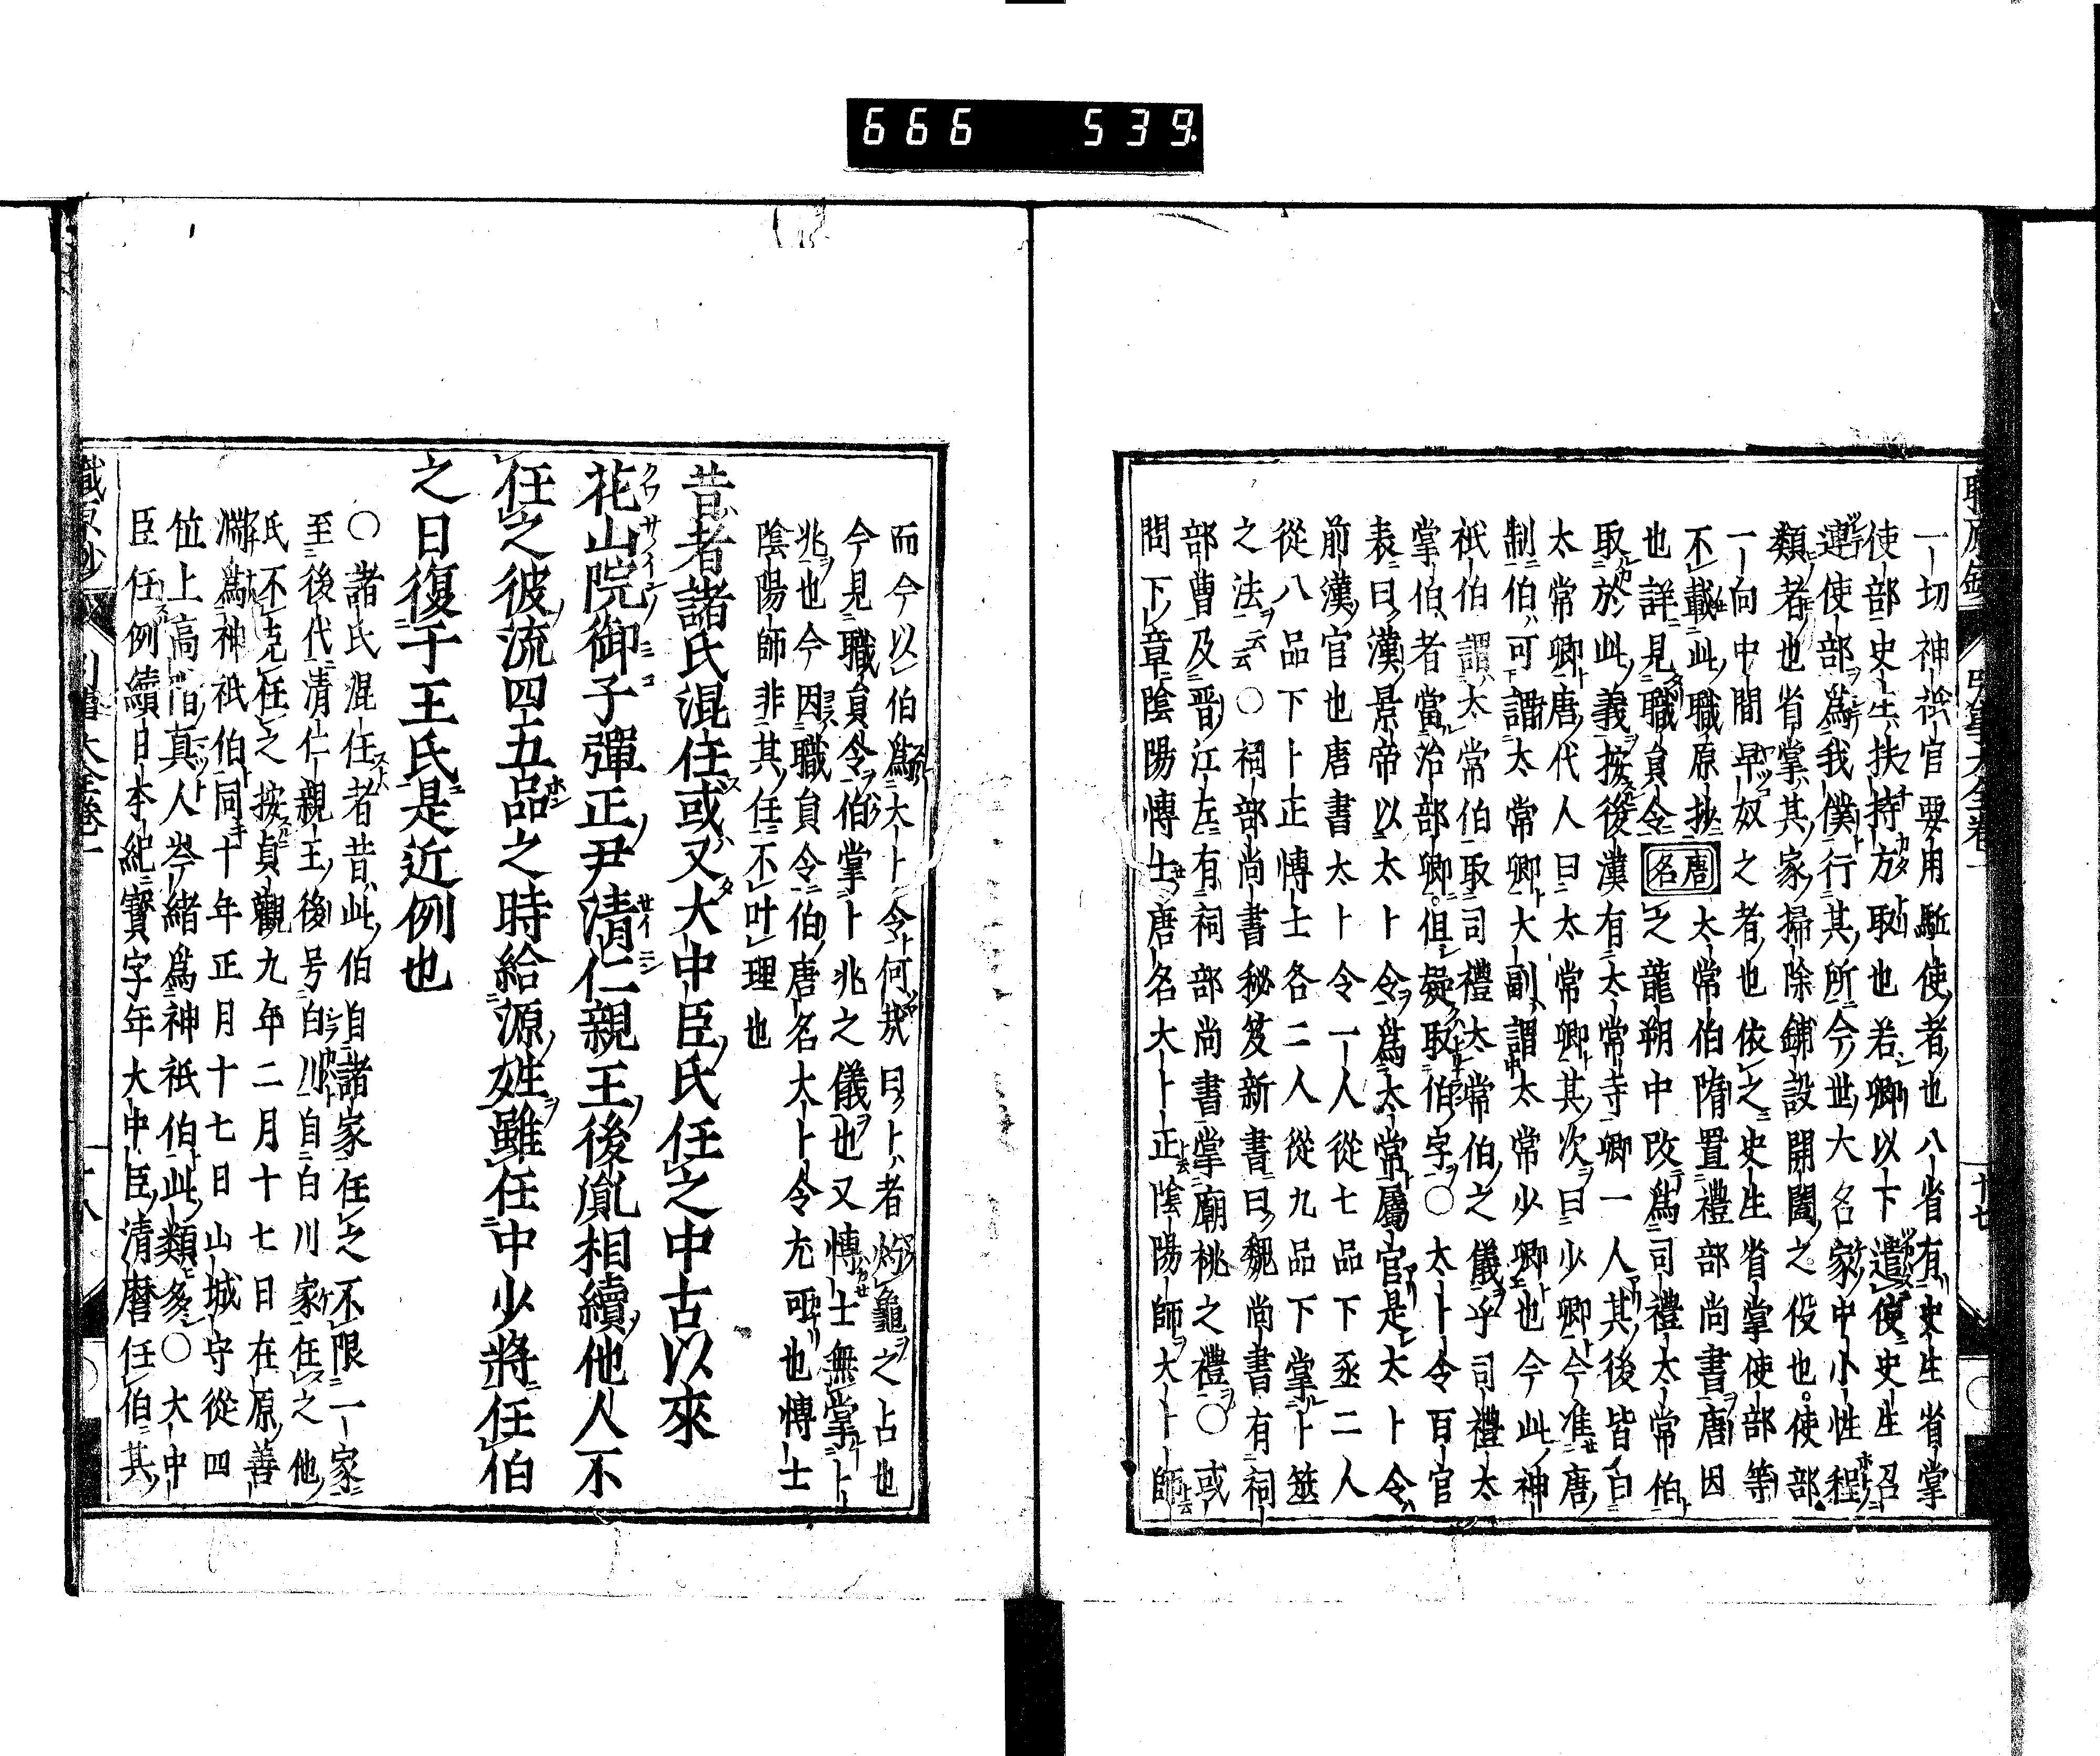 666 539
一切神祇官要用駈使者也八省有史生省掌
使部史生扶持方取也若卿以下遣使史生召
連使部為我僕行其所今世大名家中小性程
類者也省掌其家掃除鋪設開闔之役也使部
一向中間早奴之者也依之史生省掌使部等
不載此職原抄唐名太常伯隋置禮部尚書唐因
也詳見職員令之龍朔中改為司禮太常伯
取於此義按後漢有太常寺卿一人其後皆曰
太常卿唐代人曰太常卿其次曰少卿今准唐
制伯可謂太常卿大副謂太常少卿也今此神
祇伯謂太常伯取司禮太常伯之儀乎司禮太
掌伯者當治部卿但疑取伯字○太卜令百官
表曰漢景帝以太卜令為太常屬官是太卜令
前漢官也唐書太卜令一人從七品下丞二人
從八品下卜正博士各二人從九品下掌卜筮
之法云云○祠部尚書秘笈新書曰魏尚書有祠
部曹及晋江左有祠部尚書掌廟祧之禮○或
問下章陰陽博士唐名大卜正陰陽師大卜師
而今以伯為大卜令何哉曰卜者灼龜之占也
今見職員令伯掌卜兆之儀也又博士無掌卜
兆也今因職員令伯唐名太卜令尤可也博士
陰陽師非其任不叶理也
昔者諸氏混任或又大中臣氏任之中古以來
花山院御子彈正尹清仁親王後胤相續他人不
任之彼流四五品之時給源姓雖任中少將任伯
之日復于王氏是近例也
○諸氏混任者昔此伯自諸家任之不限一家
至後代清仁親王後号白川自白川家任之他
氏不克任之按貞觀九年二月十七日在原善
淵為神祇伯同十年正月十七日山城守從四
位上高階真人岑緒為神祇伯此類多○大中
臣任例續日本紀寳字年大中臣清麿任伯其